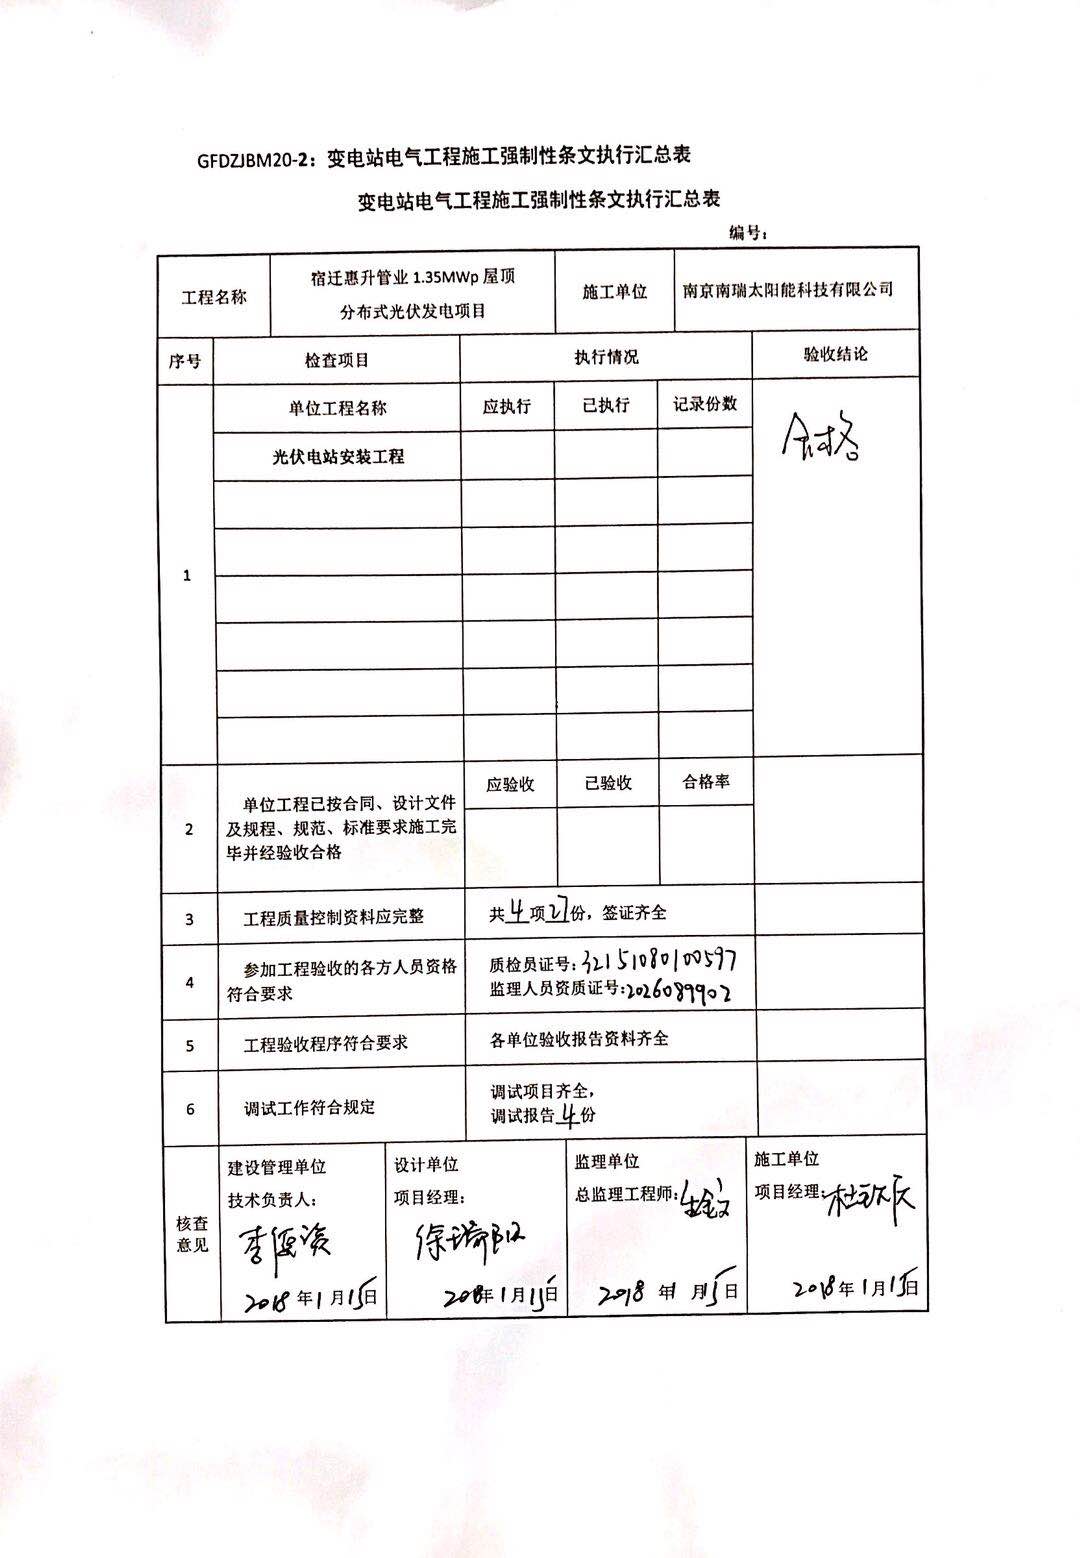 GFDZJBM20-2：变电站电气工程施工强制性条文执行汇总表
变电站电气工程施工强制性条文执行汇总表
编号：
工程名称
宿迁惠升管业 1.35MWp 屋顶
分布式光伏发电项目
施工单位
南京南瑞太阳能科技有限公司
序号
检查项目
执行情况
验收结论
1
单位工程名称
应执行
已执行
记录份数
合格
光伏电站安装工程
2
单位工程已按合同、设计文件
及规程、规范、标准要求施工完
毕并经验收合格
应验收
已验收
合格率
3
工程质量控制资料应完整
共4项27份，签证齐全
4
参加工程验收的各方人员资格
符合要求
质检员证号：32151080100597
监理人员资质证号：2026089902
5
工程验收程序符合要求
各单位验收报告资料齐全
6
调试工作符合规定
调试项目齐全，
调试报告4份
核查
意见
建设管理单位
技术负责人：
2018年1月15日
设计单位
项目经理：
2018年1月15日
监理单位
总监理工程师：
2018年1月15日
施工单位
项目经理：
2018年1月15日